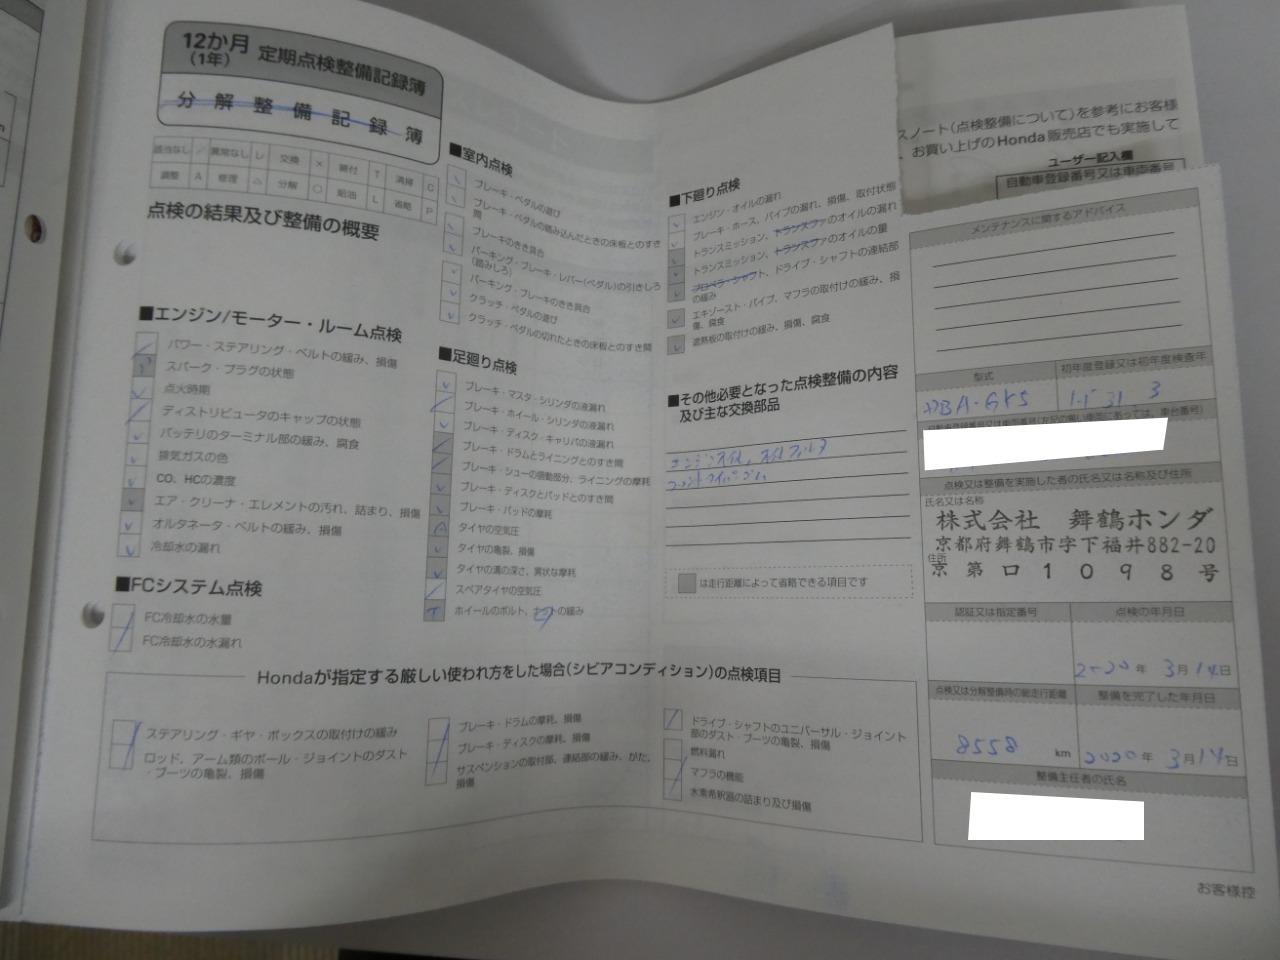 12か月
(1年)
定期点検整備記録簿
分解整備記録簿
該当なし / 異常なし レ 交換 × 締付 T 清掃 C
調整 A 修理 △ 分解 ○ 給油 L 省略 P
点検の結果及び整備の概要
■エンジン/モーター・ルーム点検
パワー・ステアリング・ベルトの緩み、損傷
スパーク・プラグの状態
点火時期
ディストリビュータのキャップの状態
バッテリのターミナル部の緩み、腐食
排気ガスの色
CO、HCの濃度
エア・クリーナ・エレメントの汚れ、詰まり、損傷
オルタネータ・ベルトの緩み、損傷
冷却水の漏れ
■FCシステム点検
FC冷却水の水量
FC冷却水の水漏れ
■室内点検
ブレーキ・ペダルの遊び
ブレーキ・ペダルの踏み込んだときの床板とのすき
間
ブレーキのきき具合
パーキング・ブレーキ・レバー(ペダル)の引きしろ
(踏みしろ)
パーキング・ブレーキのきき具合
クラッチ・ペダルの遊び
クラッチ・ペダルの切れたときの床板とのすき間
■足廻り点検
ブレーキ・マスタ・シリンダの液漏れ
ブレーキ・ホイール・シリンダの液漏れ
ブレーキ・ディスク・キャリパの液漏れ
ブレーキ・ドラムとライニングとのすき間
ブレーキ・シューの摺動部分、ライニングの摩耗
ブレーキ・ディスクとパッドとのすき間
ブレーキ・パッドの摩耗
A タイヤの空気圧
タイヤの亀裂、損傷
タイヤの溝の深さ、異状な摩耗
スペアタイヤの空気圧
T ホイールのボルト、ナットの緩み
■下廻り点検
エンジン・オイルの漏れ
ブレーキ・ホース、パイプの漏れ、損傷、取付状態
トランスミッション、トランスファのオイルの漏れ
トランスミッション、トランスファのオイルの量
プロペラ・シャフト、ドライブ・シャフトの連結部
の緩み
エキゾースト・パイプ、マフラの取付けの緩み、損
傷、腐食
遮熱板の取付けの緩み、損傷、腐食
■その他必要となった点検整備の内容
及び主な交換部品
エンジンオイル、オイルフィルタ
フロントワイパーゴム
は走行距離によって省略できる項目です
Hondaが指定する厳しい使われ方をした場合(シビアコンディション)の点検項目
ステアリング・ギヤ・ボックスの取付けの緩み
ロッド、アーム類のボール・ジョイントのダスト
・ブーツの亀裂、損傷
ブレーキ・ドラムの摩耗、損傷
ブレーキ・ディスクの摩耗、損傷
サスペンションの取付部、連結部の緩み、がた、
損傷
ドライブ・シャフトのユニバーサル・ジョイント
部のダスト・ブーツの亀裂、損傷
燃料漏れ
マフラの機能
水素希釈器の詰まり及び損傷
スノート(点検整備について)を参考にお客様
、お買い上げのHonda販売店でも実施して
ユーザー記入欄
自動車登録番号又は車両番号
メンテナンスに関するアドバイス
型式
初年度登録又は初年度検査年
DBA-GK5
31 3
点検又は整備を実施した者の氏名又は名称及び住所
氏名又は名称
株式会社 舞鶴ホンダ
京都府舞鶴市字下福井882-20
住所
京第ロ1098号
認証又は指定番号
点検の年月日
2020年 3月14日
点検又は分解整備時の総走行距離
整備を完了した年月日
8558 km
2020年 3月14日
整備主任者の氏名
お客様控